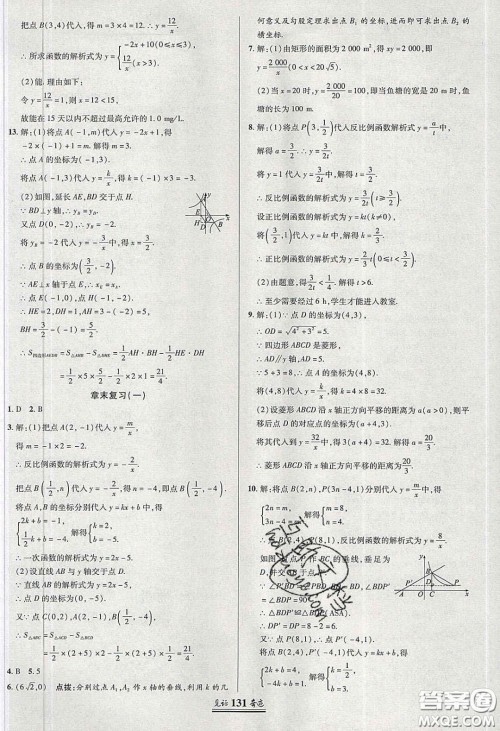 把点 B(3,4)代入,得 m=3×4=12. ∴ y=12/x.
∴ 所求函数的解析式为 y={-2x+10(0≤x≤3), 12/x(x>3).
(2)能. 理由如下:
令 y=12/x=1,则 x=12<15.
故能在 15 天以内不超过最高允许的 1.0 mg/L.
13. 解:(1)将点 A(-1,m)代入 y=-2x+1,得
-2×(-1)+1=m. 解得 m=3.
∴ 点 A 的坐标为(-1,3).
将点 A(-1,3)代入 y=k/x,得 k=-1×3=-3.
(2)如图,延长 AE,BD 交于点 H.
∵ BD∥x 轴,∴ y_B=y_D.
又点 D(0,-2),∴ y_B=-2.
将 y_B=-2 代入 y=-3/x,得 x=3/2.
∴ 点 B 的坐标为(3/2,-2).
∵ AE⊥x 轴,BH∥x 轴,
∴ E(-1,0),点 H(-1,-2).
∴ HE=2,HD=1,AH=3-(-2)=5,
BH=3/2-(-1)=5/2.
∴ S四边形AEDB=S△AHB-S△EHD=1/2AH·BH-1/2HE·HD
=1/2×5×5/2-1/2×2×1=21/4.
章末复习(一)
1. D 2. B
3. 解:(1)把点 A(2,-1)代入 y=m/x,
得 m=-1×2=-2.
∴ 反比例函数的解析式为 y=-2/x.
将点 B(1/2,n)代入 y=-2/x,得 n=-4. ∴ B(1/2,-4).
将点 A,B 的坐标分别代入 y=kx+b,得
{2k+b=-1, 1/2k+b=-4. 解得{k=2, b=-5.
∴ 一次函数的解析式为 y=2x-5.
(2)设直线 AB 与 y 轴交于点 D.
∵ 直线 AB 的解析式为 y=2x-5,
∴ 点 D(0,-5).
∵ 点 C(0,2),A(2,-1),B(1/2,-4),
∴ S△ABC=S△ACD-S△BCD
=1/2×(2+5)×2-1/2×(2+5)×1/2=21/4.
4. B 5. 5
6. (6√2,0) 点拨:分别过点 A₁,A₂ 作 x 轴的垂线,利用 k 的几
何意义及勾股定理求出点 B₁ 的坐标,进而即可求出点 B₂ 的
横坐标.
7. 解:(1)由矩形的面积为 2 000 m²,得 xy=2 000,即
y=2 000/x(0<x≤20√5).
(2)当 x=20 时,y=2 000/20=100. 所以当鱼塘的宽是 20 m 时,鱼
塘的长为 100 m.
8. 解:(1)将点 P(3,1/2)代入反比例函数解析式 y=a/t 中,
解得 a=3/2. ∴ y=3/2t.
将 y=1 代入 y=3/2t,得 t=3/2.
∴ 反比例函数的解析式为 y=3/2t(t≥3/2).
设正比例函数的解析式为 y=kt(k≠0),
将(3/2,1)代入 y=kt,得 k=2/3.
∴ 正比例函数的解析式为 y=2/3t(0≤t<3/2).
(2)由题意,得 3/2t<1/4. 解得 t>6.
∴ 至少需要经过 6 h,学生才能进入教室.
9. 解:(1)∵ 点 D 的坐标为(4,3),
∴ OD=√(4²+3²)=5.
∵ 四边形 ABCD 是菱形,∴ AD=DO=5.
∵ AD∥y 轴,∴ 点 A 的横坐标为 4,
∵ 5+3=8,∴ 点 A 的坐标为(4,8).
将点 A(4,8)代入 y=k/x,得 k=4×8=32.
(2)设菱形 ABCD 沿 x 轴正方向平移的距离为 a(a>0),则平移后点 D 的对应点的坐标为(4+a,3).
将 y=3 代入 y=32/x,得 x=32/3. ∴ 4+a=32/3. ∴ a=20/3.
∴ 菱形 ABCD 沿 x 轴正方向平移的距离为 20/3.
10. 解:(1)将点 B(2,n),P(3n-4,1)分别代入 y=m/x,得
{2n=m, 3n-4=m. 解得{m=8, n=4.
∴ 点 B(2,4),P(8,1),反比例函数的解析式为 y=8/x.
∵ ∠BDP=90°.
∴ P'(-4,1).
{2k+b=4, -4k+b=1. 解得{k=1/2, b=3.
见证 131 奇迹
答案圈
MXQE.COM